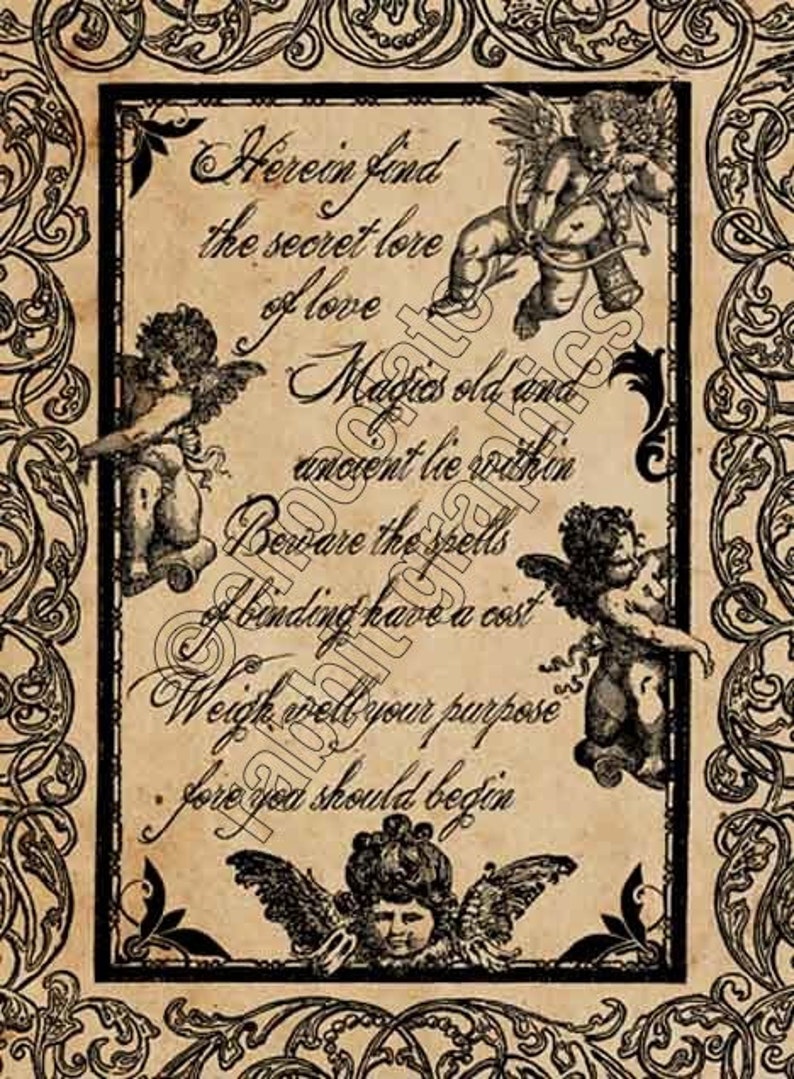 Herein find
the secret lore
of love
Magics old and
ancient lie within
Beware the spells
of binding have a cost
Weigh well your purpose
fore you should begin
©chocolate
rabbit graphics